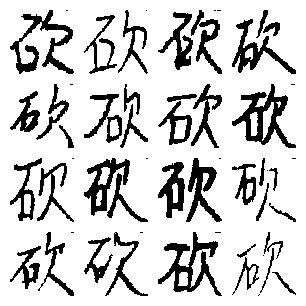 砍砍砍砍
砍砍砍砍
砍砍砍砍
砍砍砍砍